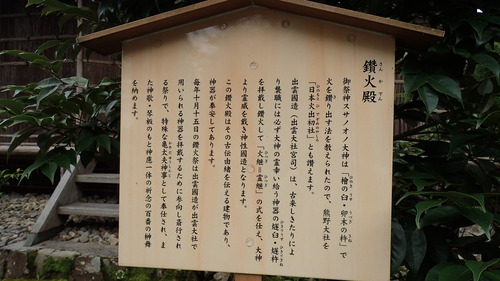 鑽火殿
さんかでん
御祭神スサノオノ大神は「檜の臼・卯木の杵」で
火を鑽り出す法を教えられたので、熊野大社を
「日本火出初社」とも讃えます。
出雲國造(出雲大社宮司)は、古来しきたりによ
り襲職には必ず大神の霊幸い給う神器の燧臼・燧杵
を拝戴し鑽火して「火継=霊継」の式を仕え、大神
より霊威を戴き神性國造となります。
この鑽火殿はその古伝由緒を伝える建物であり、
神器が奉安してあります。
毎年十月十五日の鑽火祭は出雲國造が出雲大社で
用いられる神器を拝戴するために参向し斎行され
る祭りで、特殊な亀太夫神事として奉仕され、ま
た神歌・琴板のもと神慮一体の祈念の百番の榊舞
を納めます。